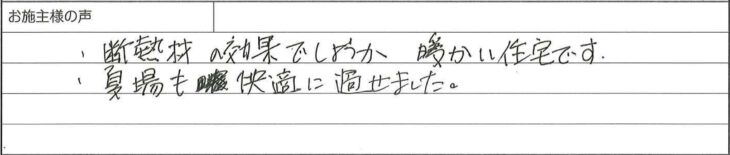 お施主様の声
・断熱材の効果でしょうか 暖かい住宅です.
・夏場も快適に過せました。